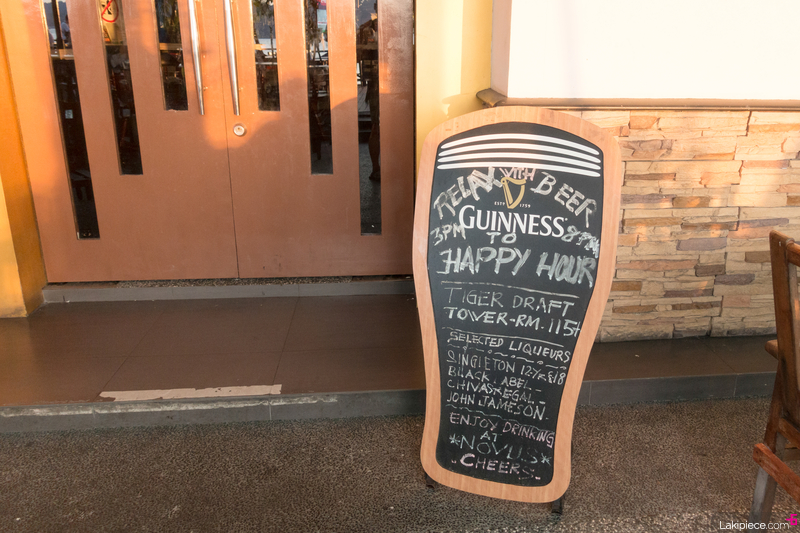 RELAX WITH BEER
ESTD 1759
GUINNESS
3PM TO 8PM
HAPPY HOUR
TIGER DRAFT
TOWER-RM.115+
SELECTED LIQUEURS
SINGLETON 12Yr&18
BLACK LABEL
CHIVAS REGAL
JOHN JAMESON
ENJOY DRINKING
AT
*NOVUS*
CHEERS
Lakipiece.com